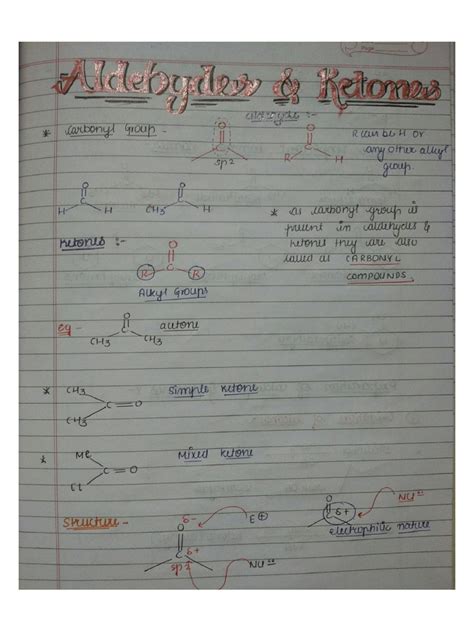 Aldehydes & Ketones
* Carbonyl Group - O C sp2
Aldehyde :-
O R C H
R can be H or
any other alkyl
group.
O H C H
O CH3 C H
* As carbonyl group is
present in aldehydes &
ketones they are also
called as CARBONYL
COMPOUNDS.
Ketones :-
O
R C R
Alkyl Groups
eg - O CH3 C CH3 acetone
* CH3 CH3 C = O Simple ketone
* Me Et C = O Mixed ketone
Structure - δ- O C δ+ sp2 E⊕ Nu
O C δ+ Nu
electrophilic nature